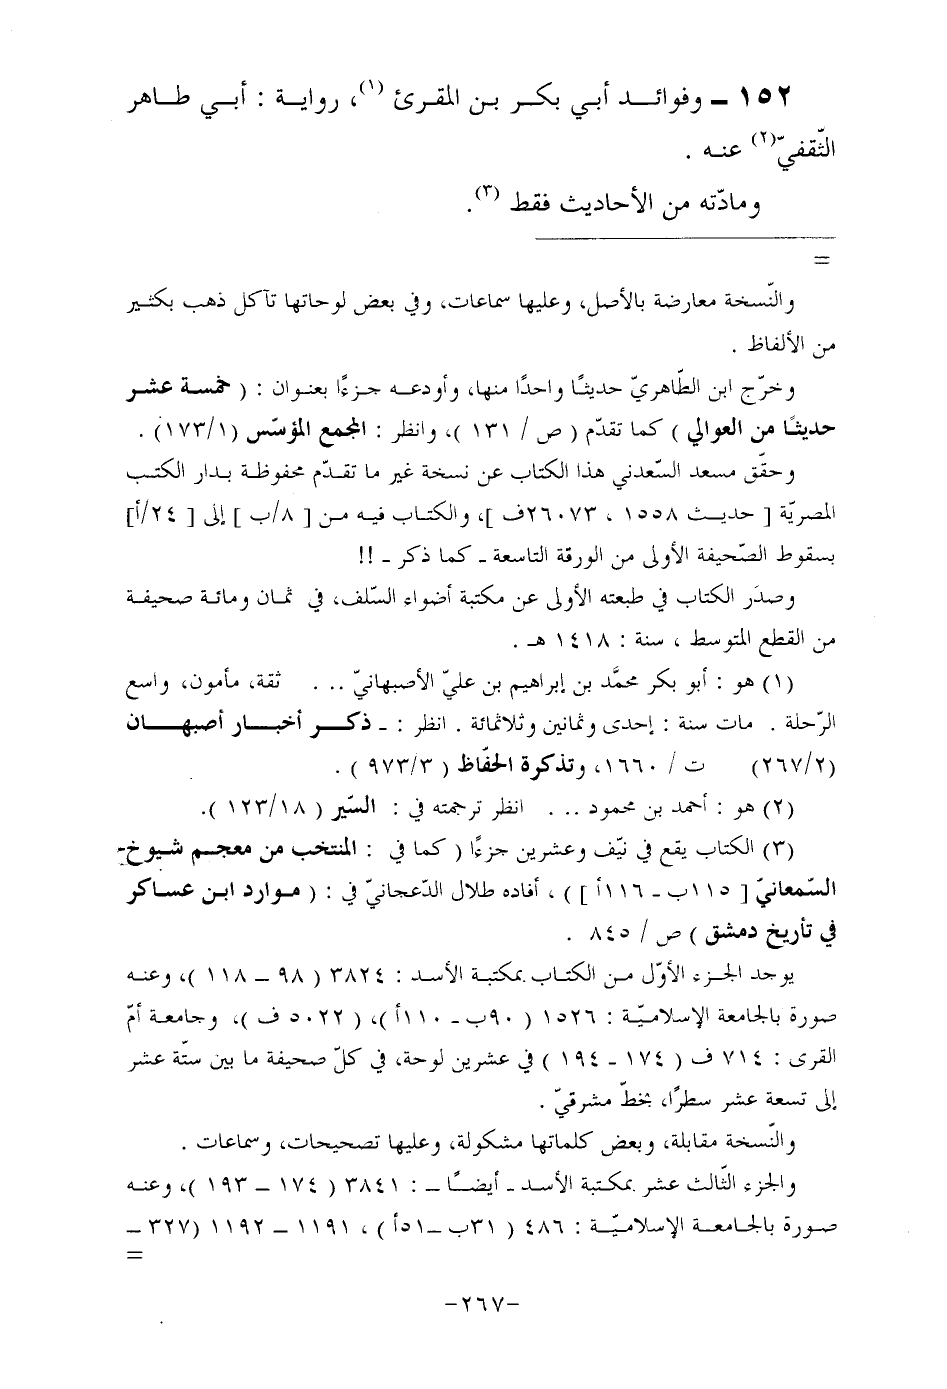 ١٥٢ – وفوائـد أبي بكـر بن المقـرئ (١)، روايـة : أبـي طـاهر
الثّقفيّ(٢) عنـه .
ومادّته من الأحاديث فقط (٣).
=
والنّسخة معارضة بالأصل، وعليها سماعات، وفي بعض لوحاتها تآكل ذهب بكثير
من الألفاظ .
وخرّج ابن الطّاهريّ حديثًا واحدًا منها، وأودعـه جـزءًا بعنـوان : ( خمسـة عشـر
حديثًـا من العوالي ) كما تقدّم ( ص / ١٣١ )، وانظر : المجمع المؤسّس (١٧٣/١) .
وحقّق مسعد السّعدني هذا الكتاب عن نسخة غير ما تقـدّم محفوظـة بـدار الكتـب
المصريّة [ حديـث ١٥٥٨ ، ٢٦٠٧٣ف ]، والكتـاب فيـه مـن [ ٨/ب ] إلى [ ٢٤/أ]
بسقوط الصّحيفة الأولى من الورقة التاسعة ـ كما ذكر ـ !!
وصدَر الكتاب في طبعته الأولى عن مكتبة أضواء السّلف، في ثمـان ومائـة صحيفـة
من القطع المتوسط ، سنة : ١٤١٨ هـ .
(١) هو : أبو بكر محمَّد بن إبراهيم بن عليّ الأصبهانيّ .. . ثقة، مأمون، واسع
الرّحلة . مات سنة : إحدى وثمانين وثلاثمائة . انظر : ـ ذكـر أخبـار أصبهـان
(٢٦٧/٢) ت / ١٦٦٠، وتذكرة الحفّاظ ( ٩٧٣/٣ ) .
(٢) هو : أحمد بن محمود .. . انظر ترجمته في : السّير ( ١٢٣/١٨ ).
(٣) الكتاب يقع في نيّف وعشرين جزءًا ( كما في : المنتخب من معجـم شيـوخ-
السّمعانيّ [ ١١٥ب ـ ١١٦أ ] ) ، أفاده طلال الدّعجانيّ في : ( مـوارد ابـن عسـاكر
في تأريخ دمشق ) ص / ٨٤٥ .
يوجد الجزء الأوّل من الكتاب بمكتبة الأسد : ٣٨٢٤ ( ٩٨ – ١١٨ )، وعنـه
صورة بالجامعة الإسلاميّـة : ١٥٢٦ ( ٩٠ب ـ ١١٠أ )، ( ٥٠٢٢ ف )، وجامعـة أمّ
القرى : ٧١٤ ف ( ١٧٤ ـ ١٩٤ ) في عشرين لوحة، في كلّ صحيفة ما بين ستّة عشر
إلى تسعة عشر سطرًا، بخطّ مشرقيّ .
والنّسخة مقابلة، وبعض كلماتها مشكولة، وعليها تصحيحات، وسماعات .
والجزء الثّالث عشر بمكتبة الأسد ـ أيضًـا ـ : ٣٨٤١ ( ١٧٤ – ١٩٣ )، وعنـه
صورة بالجامعـة الإسـلاميّـة : ٤٨٦ ( ٣١ب ـ٥١أ ) ، ١١٩١ – ١١٩٢ (٣٢٧ –
=
-٢٦٧-